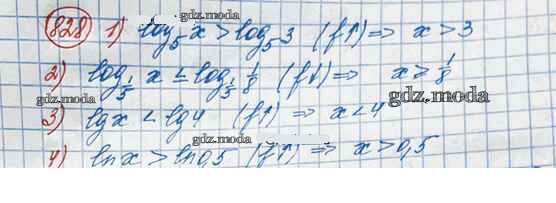 828 1) log₅ x > log₅ 3 (f↑) ⇒ x > 3
2) log_{1/5} x ≤ log_{1/5} 1/8 (f↓) ⇒ x ≥ 1/8
3) lg x < lg 4 (f↑) ⇒ x < 4
4) ln x > ln 0,5 (f↑) ⇒ x > 0,5
gdz.moda
gdz.moda
gdz.moda
gdz.moda
gdz.moda
gdz.moda